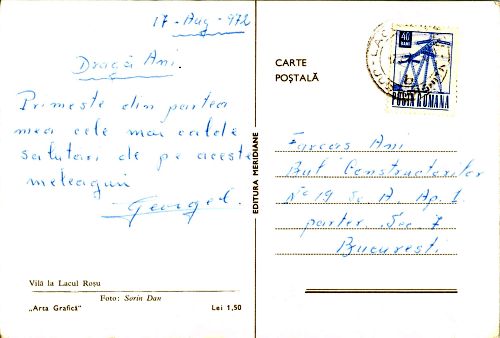 17 - Aug - 972
Dragă Ani.
Primește din partea
mea cele mai calde
salutări de pe aceste
meleaguri
Georgel.
Vilă la Lacul Roșu
Foto: Sorin Dan
„Arta Grafică”
Lei 1,50
EDITURA MERIDIANE
CARTE
POȘTALĂ
40
BANI
POSTA ROMANA
Farcas Ani
Bul Constructorilor
No 19 Ap. 1
parter Sec 7
București